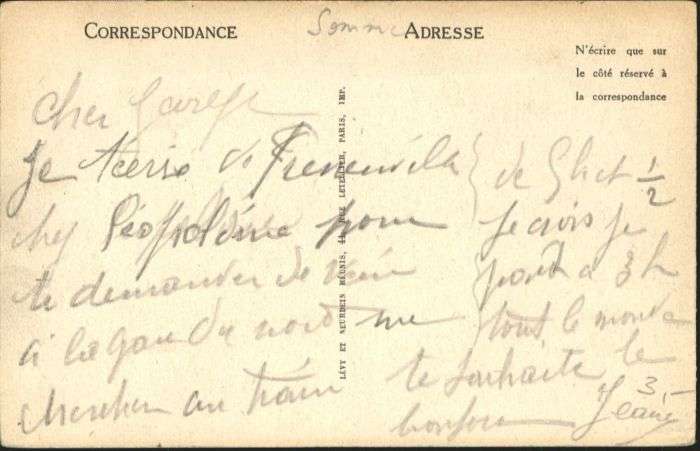 CORRESPONDANCE
Somme
ADRESSE
N'écrire que sur
le côté réservé à
la correspondance
LÉVY ET NEURDEIN RÉUNIS, 44, RUE LETELLIER, PARIS, IMP.
cher
Je t'ecris de
chez Léopoldine pour
te demander de venir
a la gare du nord me
chercher au train
de 8h et 1/2
je crois je
part a 3 h
tout le monde
te souhaite le
bonjour Jeanne
3,-